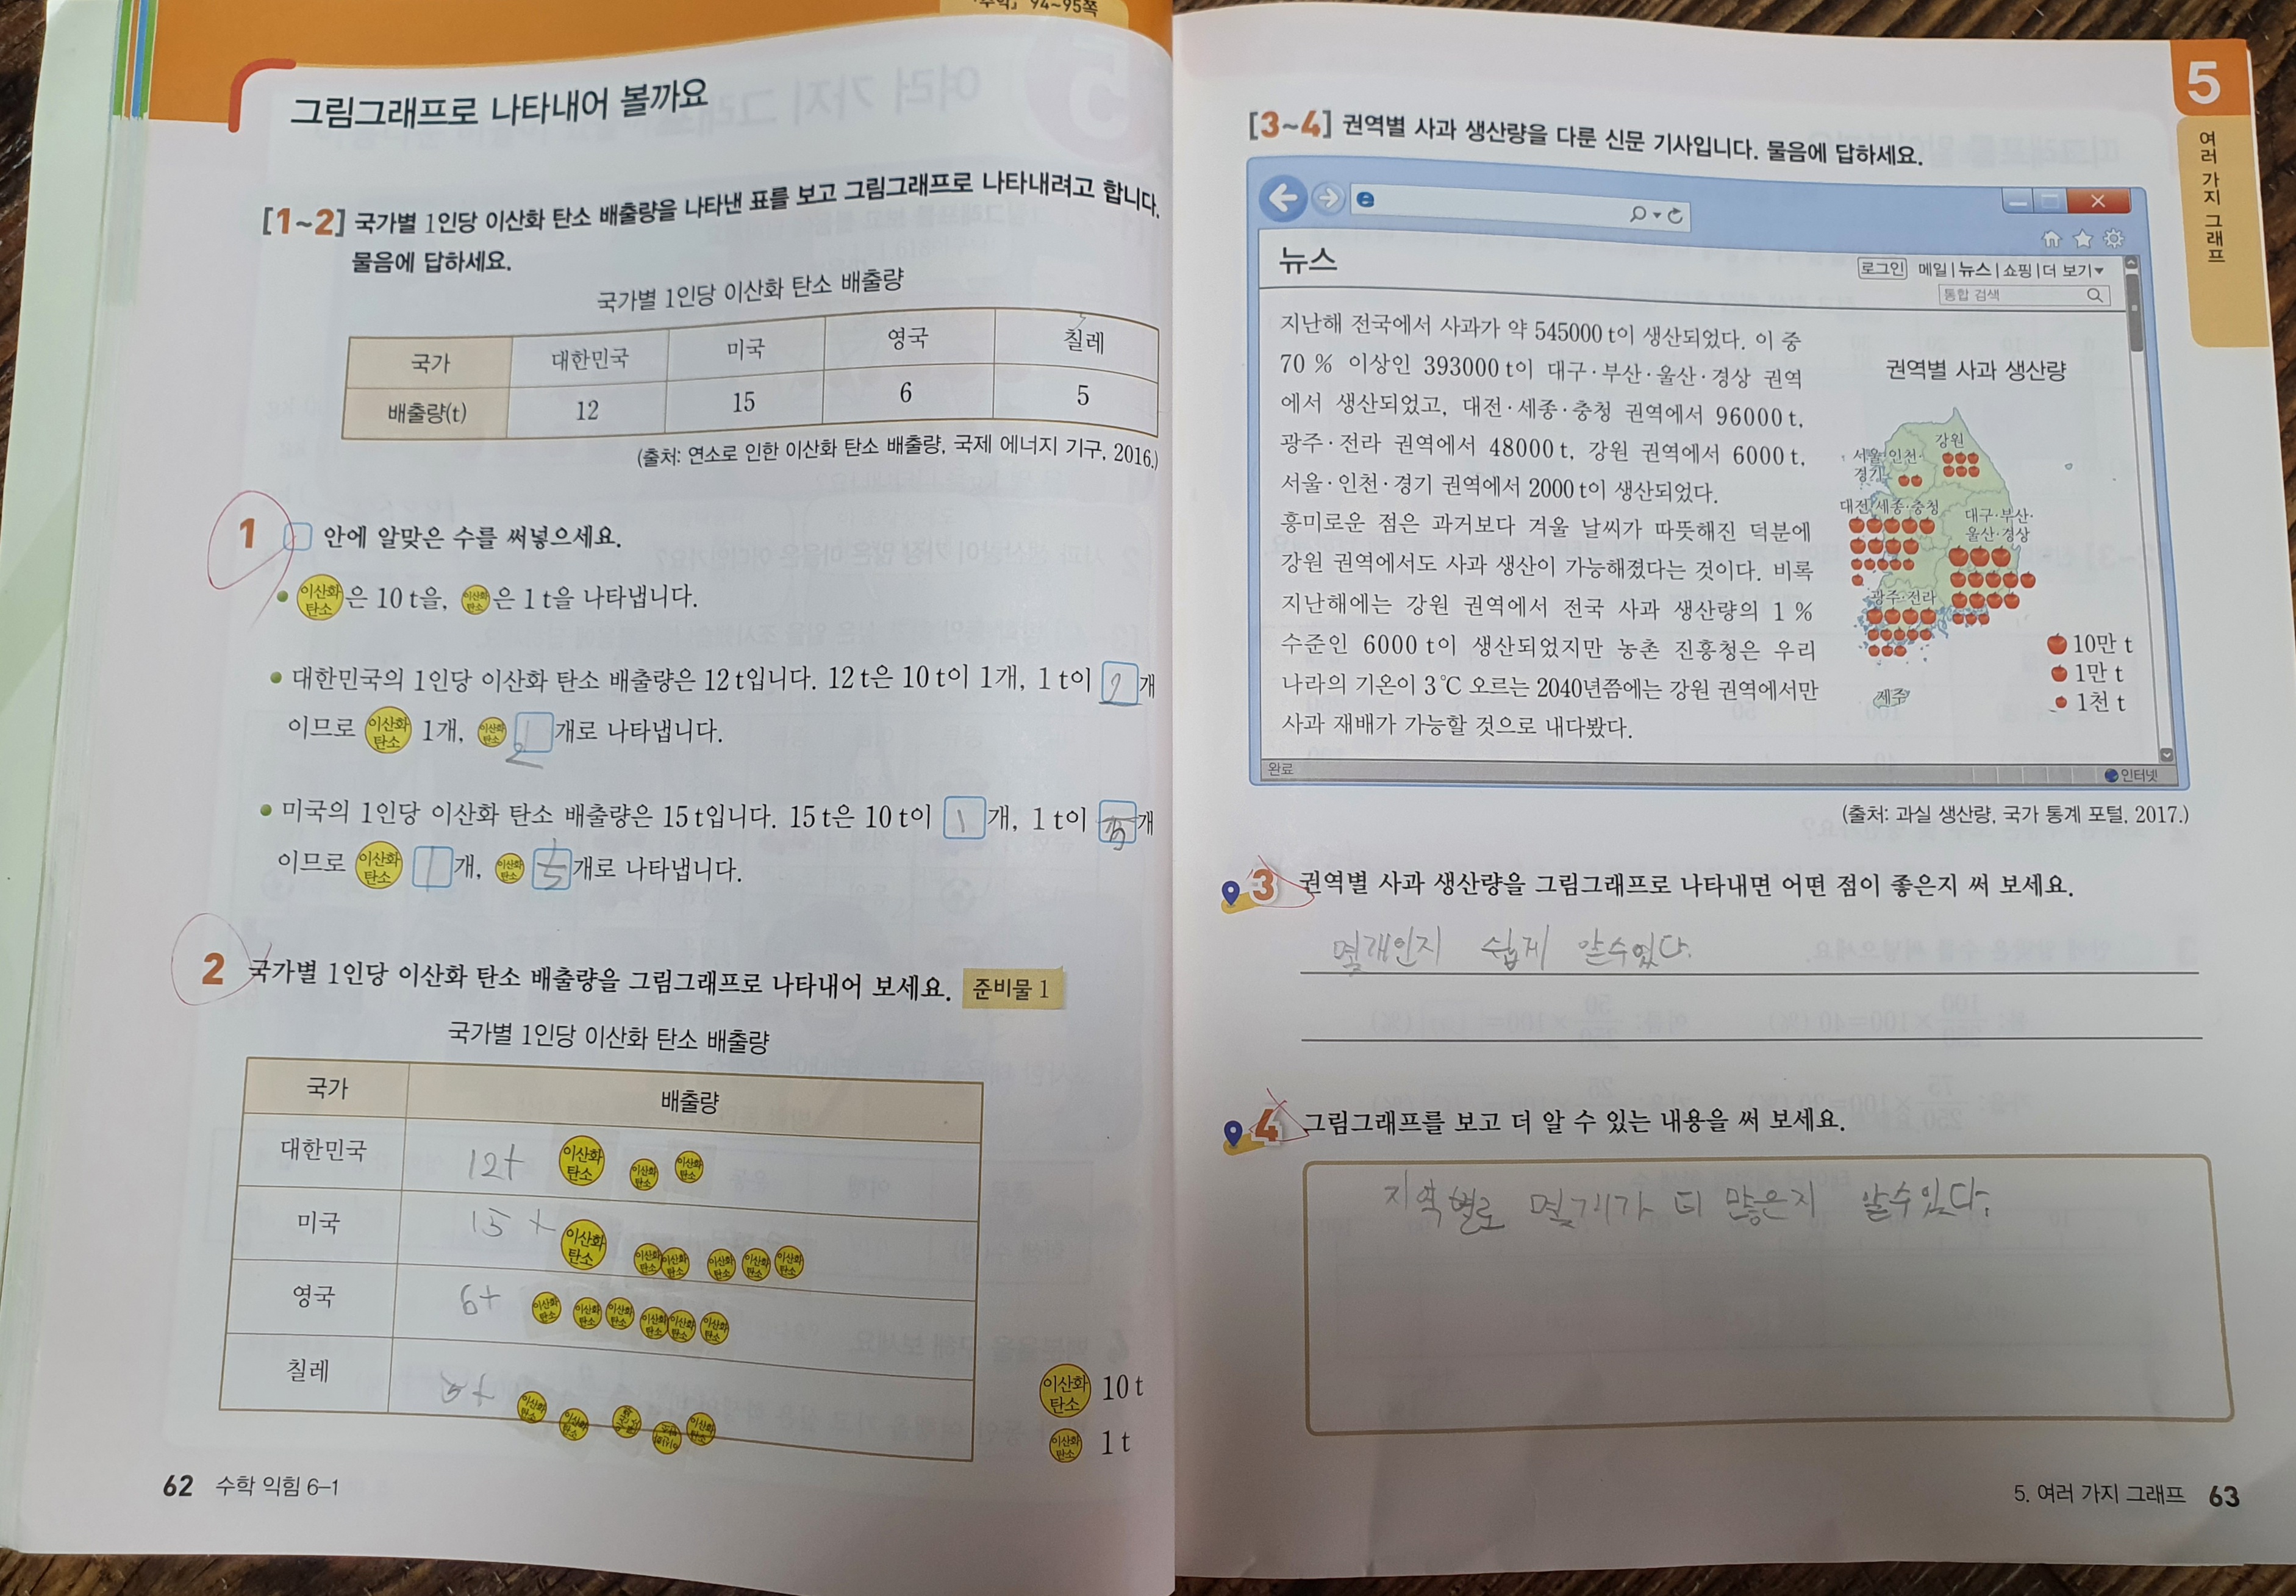 『수학』 94~95쪽
그림그래프로 나타내어 볼까요
[1~2] 국가별 1인당 이산화 탄소 배출량을 나타낸 표를 보고 그림그래프로 나타내려고 합니다.
물음에 답하세요.
국가별 1인당 이산화 탄소 배출량
국가 대한민국 미국 영국 칠레
배출량(t) 12 15 6 5
(출처: 연소로 인한 이산화 탄소 배출량, 국제 에너지 기구, 2016.)
1 안에 알맞은 수를 써넣으세요.
이산화 탄소 은 10 t을, 이산화 탄소 은 1 t을 나타냅니다.
대한민국의 1인당 이산화 탄소 배출량은 12 t입니다. 12 t은 10 t이 1개, 1 t이 2 개
이므로 이산화 탄소 1개, 이산화 탄소 2 개로 나타냅니다.
미국의 1인당 이산화 탄소 배출량은 15 t입니다. 15 t은 10 t이 1 개, 1 t이 5 개
이므로 이산화 탄소 1 개, 이산화 탄소 5 개로 나타냅니다.
2 국가별 1인당 이산화 탄소 배출량을 그림그래프로 나타내어 보세요. 준비물 1
국가별 1인당 이산화 탄소 배출량
국가 배출량
대한민국 12t 이산화 탄소 이산화 탄소 이산화 탄소
미국 15t 이산화 탄소 이산화 탄소 이산화 탄소 이산화 탄소 이산화 탄소 이산화 탄소
영국 6t 이산화 탄소 이산화 탄소 이산화 탄소 이산화 탄소 이산화 탄소 이산화 탄소
칠레 5t 이산화 탄소 이산화 탄소 이산화 탄소 이산화 탄소 이산화 탄소
이산화 탄소 10 t
이산화 탄소 1 t
62 수학 익힘 6-1
5
여러 가지 그래프
[3~4] 권역별 사과 생산량을 다룬 신문 기사입니다. 물음에 답하세요.
뉴스
로그인 메일 | 뉴스 | 쇼핑 | 더 보기
통합 검색
지난해 전국에서 사과가 약 545000 t이 생산되었다. 이 중
70 % 이상인 393000 t이 대구·부산·울산·경상 권역
에서 생산되었고, 대전·세종·충청 권역에서 96000 t,
광주·전라 권역에서 48000 t, 강원 권역에서 6000 t,
서울·인천·경기 권역에서 2000 t이 생산되었다.
흥미로운 점은 과거보다 겨울 날씨가 따뜻해진 덕분에
강원 권역에서도 사과 생산이 가능해졌다는 것이다. 비록
지난해에는 강원 권역에서 전국 사과 생산량의 1 %
수준인 6000 t이 생산되었지만 농촌 진흥청은 우리
나라의 기온이 3℃ 오르는 2040년쯤에는 강원 권역에서만
사과 재배가 가능할 것으로 내다봤다.
권역별 사과 생산량
강원
서울·인천·
경기
대전·세종·충청
대구·부산·
울산·경상
광주·전라
제주
10만 t
1만 t
1천 t
완료
인터넷
(출처: 과실 생산량, 국가 통계 포털, 2017.)
3 권역별 사과 생산량을 그림그래프로 나타내면 어떤 점이 좋은지 써 보세요.
몇개인지 쉽게 알수있다.
4 그림그래프를 보고 더 알 수 있는 내용을 써 보세요.
지역별로 몇개가 더 많은지 알수있다.
5. 여러 가지 그래프 63